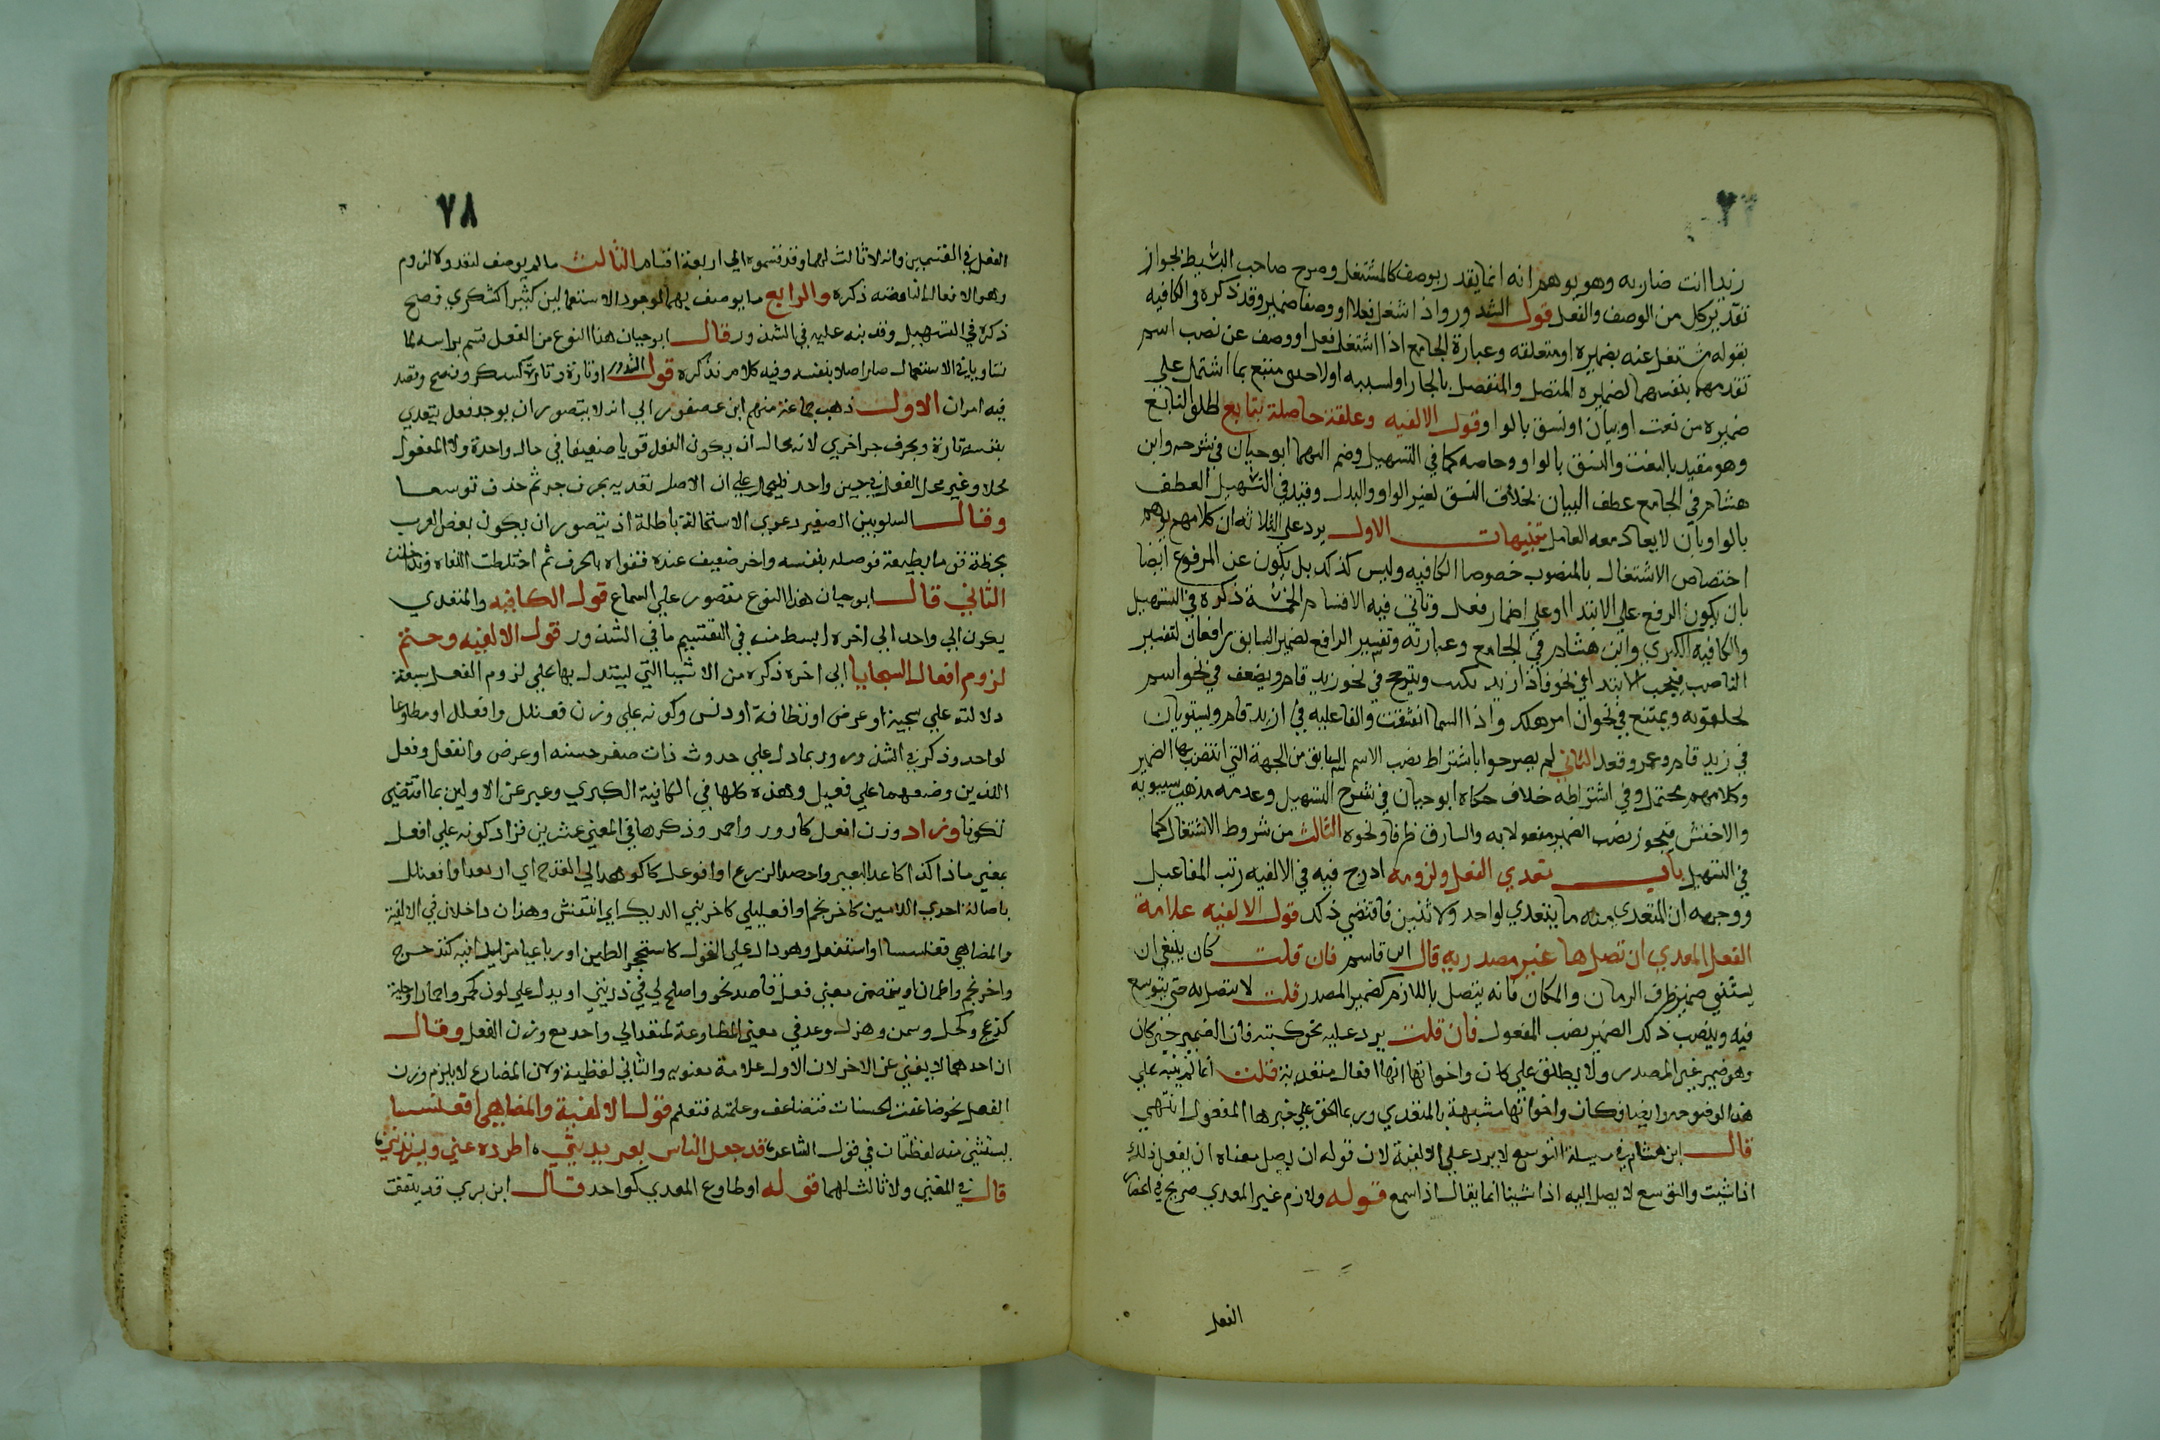 زيدا انت ضاربه وهو يوهم انه انما يقدر بوصف كالمشتغل وصرح صاحب البسيط بجواز
تقدير كل من الوصف والفعل قول الشذور واذا شغل فعلا او وصفا ضمير وقد ذكره في الكافيه
بقوله مشتغل عنه بضميره او متعلقه وعبارة الجامع اذا اشتغل فعل او وصف عن نصب اسم
تقدمهما بنفسهما لضميره المتصل والمنفصل بالجار او لسببه او لاجنبي متبع بما اشتمل علي
ضميره من نعت او بيان او نسق بالواو وقول الالفيه وعلقة حاصلة بتابع اطلق التابع
وهو مقيد بالنعت والنسق بالواو وخاصه كما في التسهيل وضم اليهما ابو حيان في شرحه وابن
هشام في الجامع عطف البيان بخلاف النسق بغير الواو والبدل وقيد في التسهيل العطف
بالواو بان لا يعاد معه العامل تنبيهات الاول يرد علي الثلاثه ان كلامهم يوهم
اختصاص الاشتغال بالمنصوب خصوصا الكافيه وليس كذلك بل يكون عن المرفوع ايضا
بان يكون الرفع علي الابتدا او علي اضمار فعل وتاتي فيه الاقسام الخمسة ذكره في التسهيل
والكافيه الكبري وابن هشام في الجامع وعبارته وتفسير الرافع لضمير السابق رافعا كتفسير
الناصب فيجب الابتدا في نحو فاذا زيد يكتب ويترجح في نحو زيد قام ويضعف في نحو اسم
لحلقومه ويمتنع في نحو ان امر هلك واذا السما انشقت والفاعليه في ازيد قام ويستويان
في زيد قام وعمرو قعد الثاني لم يصرحوا باشتراط نصب الاسم السابق من الجهة التي انتصب بها الضمير
وكلامهم محتمل وفي اشتراطه خلاف حكاه ابو حيان في شرح التسهيل وعدمه مذهب سيبويه
والاخفش فيجوز نصب الضمير مفعولا به والسابق ظرفا ونحوه الثالث من شروط الاشتغال كما
في التسهيل باب تعدي الفعل ولزومه ادرج فيه في الالفيه رتب المفاعيل
ووجهه ان المتعدي منه ما يتعدي لواحد ولاثنين فاقتضي ذكر قول الالفيه علامة
الفعل المعدي ان تصل ها غير مصدر به قال ابن قاسم فان قلت كان ينبغي ان
يستثني ضمير ظرف الزمان والمكان فانه يتصل باللازم كضمير المصدر قلت لا يتصل به حتي يتوسع
فيه وينصب ذلك الضمير نصب المفعول فان قلت يرد عليه نحو كنته فان الضمير خبر كان
وهو ضمير غير المصدر ولا يطلق علي كان واخواتها انها افعال متعدية قلت انما لم ينبه علي
هذا لوضوحه وايضا فكان واخواتها مشبهة بالمتعدي وربما اطلق علي خبرها المفعول انتهي
قال ابن هشام في مسئلة التوسع لا يرد علي الالفية لان قوله ان يصل معناه ان يفعل ذلك
اذا شيت والتوسع لا يصل اليه اذا شينا انما يقال اذا سمع قوله ولازم غير المعدي صريح في انحصار
الفعل
٧٨
الفعل في القسمين وانه لا ثالث لهما وقد قسموه الي اربعة اقسام الثالث ما لم يوصف لتعد ولا لزوم
وهو الافعال الناقصه ذكره والرابع ما يوصف بهما لوجود الاستعمالين كثيرا كشكري وضح
ذكره في التسهيل وقد نبه عليه في الشذور قال ابو حيان هذا النوع من الفعل قسم براسه لما
تساويا في الاستعمال صار اصلا بنفسه وفيه كلام نذكره قول الشذور او تارة وتارة كشكر ونصح وقصد
فيه امران الاول ذهب جماعة منهم ابن عصفور الي انه لا يتصور ان يوجد فعل يتعدي
بنفسه تارة وبحرف جر اخري لانه محال ان يكون الفعل قويا ضعيفا في حال واحدة ولا المفعول
محلا وغير محل للفعل في حين واحد فليحمل علي ان الاصل تعديه بحرف جر ثم حذف توسعا
وقال السلوبين الصغير دعوي الاستحالة باطلة اذ يتصور ان يكون بعض العرب
بحظه فوي ما بطبيعة فوصله بنفسه واخر ضعيف عنده فقواه بالحرف ثم اختلطت اللغاه وتداخلت
الثاني قال ابو حيان هذا النوع مقصور علي السماع قول الكافيه والمتعدي
يكون الي واحد الي اخره ابسط منه في التقسيم ما في الشذور قول الالفيه وحتم
لزوم افعال السجايا الي اخره ذكره من الاشيا التي ليستدل بها علي لزوم الفعل سبعة
دلالته علي سجية او عرض او نظافة او دنس وكونه علي وزن افعنلل وافعلل او مطاوعا
لواحد وذكر في الشذور وربما دل علي حدوث ذات صفر حسنه او عرض وانفعل وفعل
اللذين وضعهما علي فعيل وهذه كلها في الكافية الكبري وعبر عن الاولين بما اقتضي
تكونا وزاد وزن افعل كازور واحمر وذكرها في المغني عشرين فزاد كونه علي افعل
بمعني صار ذا كذا كاغد البعير واحصد الزرع او افوعل كاكوهد الي الفرخ اي ارتعد او افعنلل
باصالة احدي اللامين كاحرنجم او افعنلي كاحرنبي الديك اي انتفش وهذان داخلان في الالفية
والمضاهي قعنسسا او استفعل وهو دال علي التحول كاستحجر الطين او رباعيا مزيدا فيه كتدحرج
واحرنجم واطمان او يتضمن معني فعل قاصد نحو واصلح لي في ذريتي او يدل علي لون كحمر واحمار او حلية
كدعج وكحل وسمن وهزل وعد في معني المطاوعة لمتعد الي واحد مع وزن الفعل وقال
ان احدهما لا يغني عن الاخر لان الاول علامة معنويه والثاني لفظية ولان المضارع لا يلزم وزن
الفعل نحو ضاعفت الحسنات فتضاعف وعلمته فتعلم قول الالفية والمضاهي اقعنسسا
يستثني منه لفظتان في قول الشاعر قد جعل النعاس يغرنديني اطرده عني ويسرنديني
قال في المغني ولا ثالث لهما قوله او طاوع المعدي كواحد قال ابن بري قد يتفقت